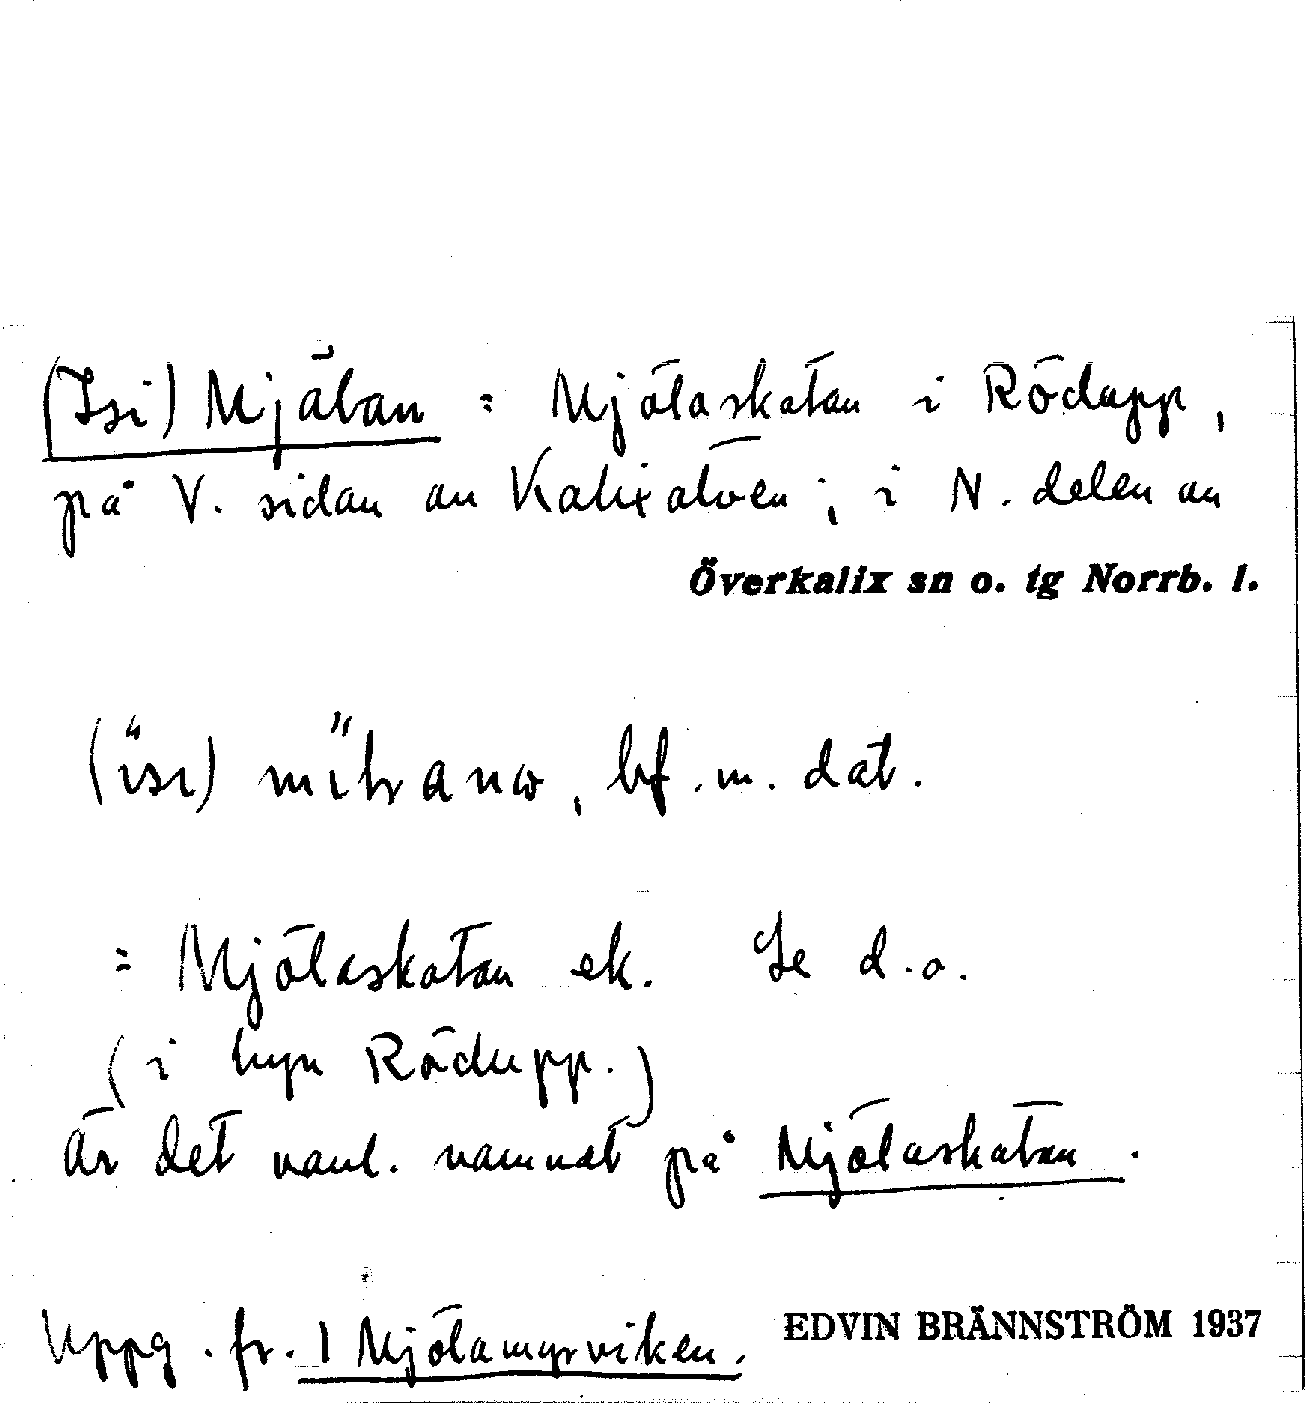 (Isi) Mjälan = Mjölaskatan i Rödupp,
på V. sidan av Kalixälven; i N. delen av
Överkalix sn o. tg Norrb. l.
bf. m. dat.
= Mjölaskatan ek. Se d.o.
(i byn Rödupp.)
är det vanl. namnet på Mjölaskatan.
Uppg. fr. 1 Mjölamyrviken.
EDVIN BRÄNNSTRÖM 1937